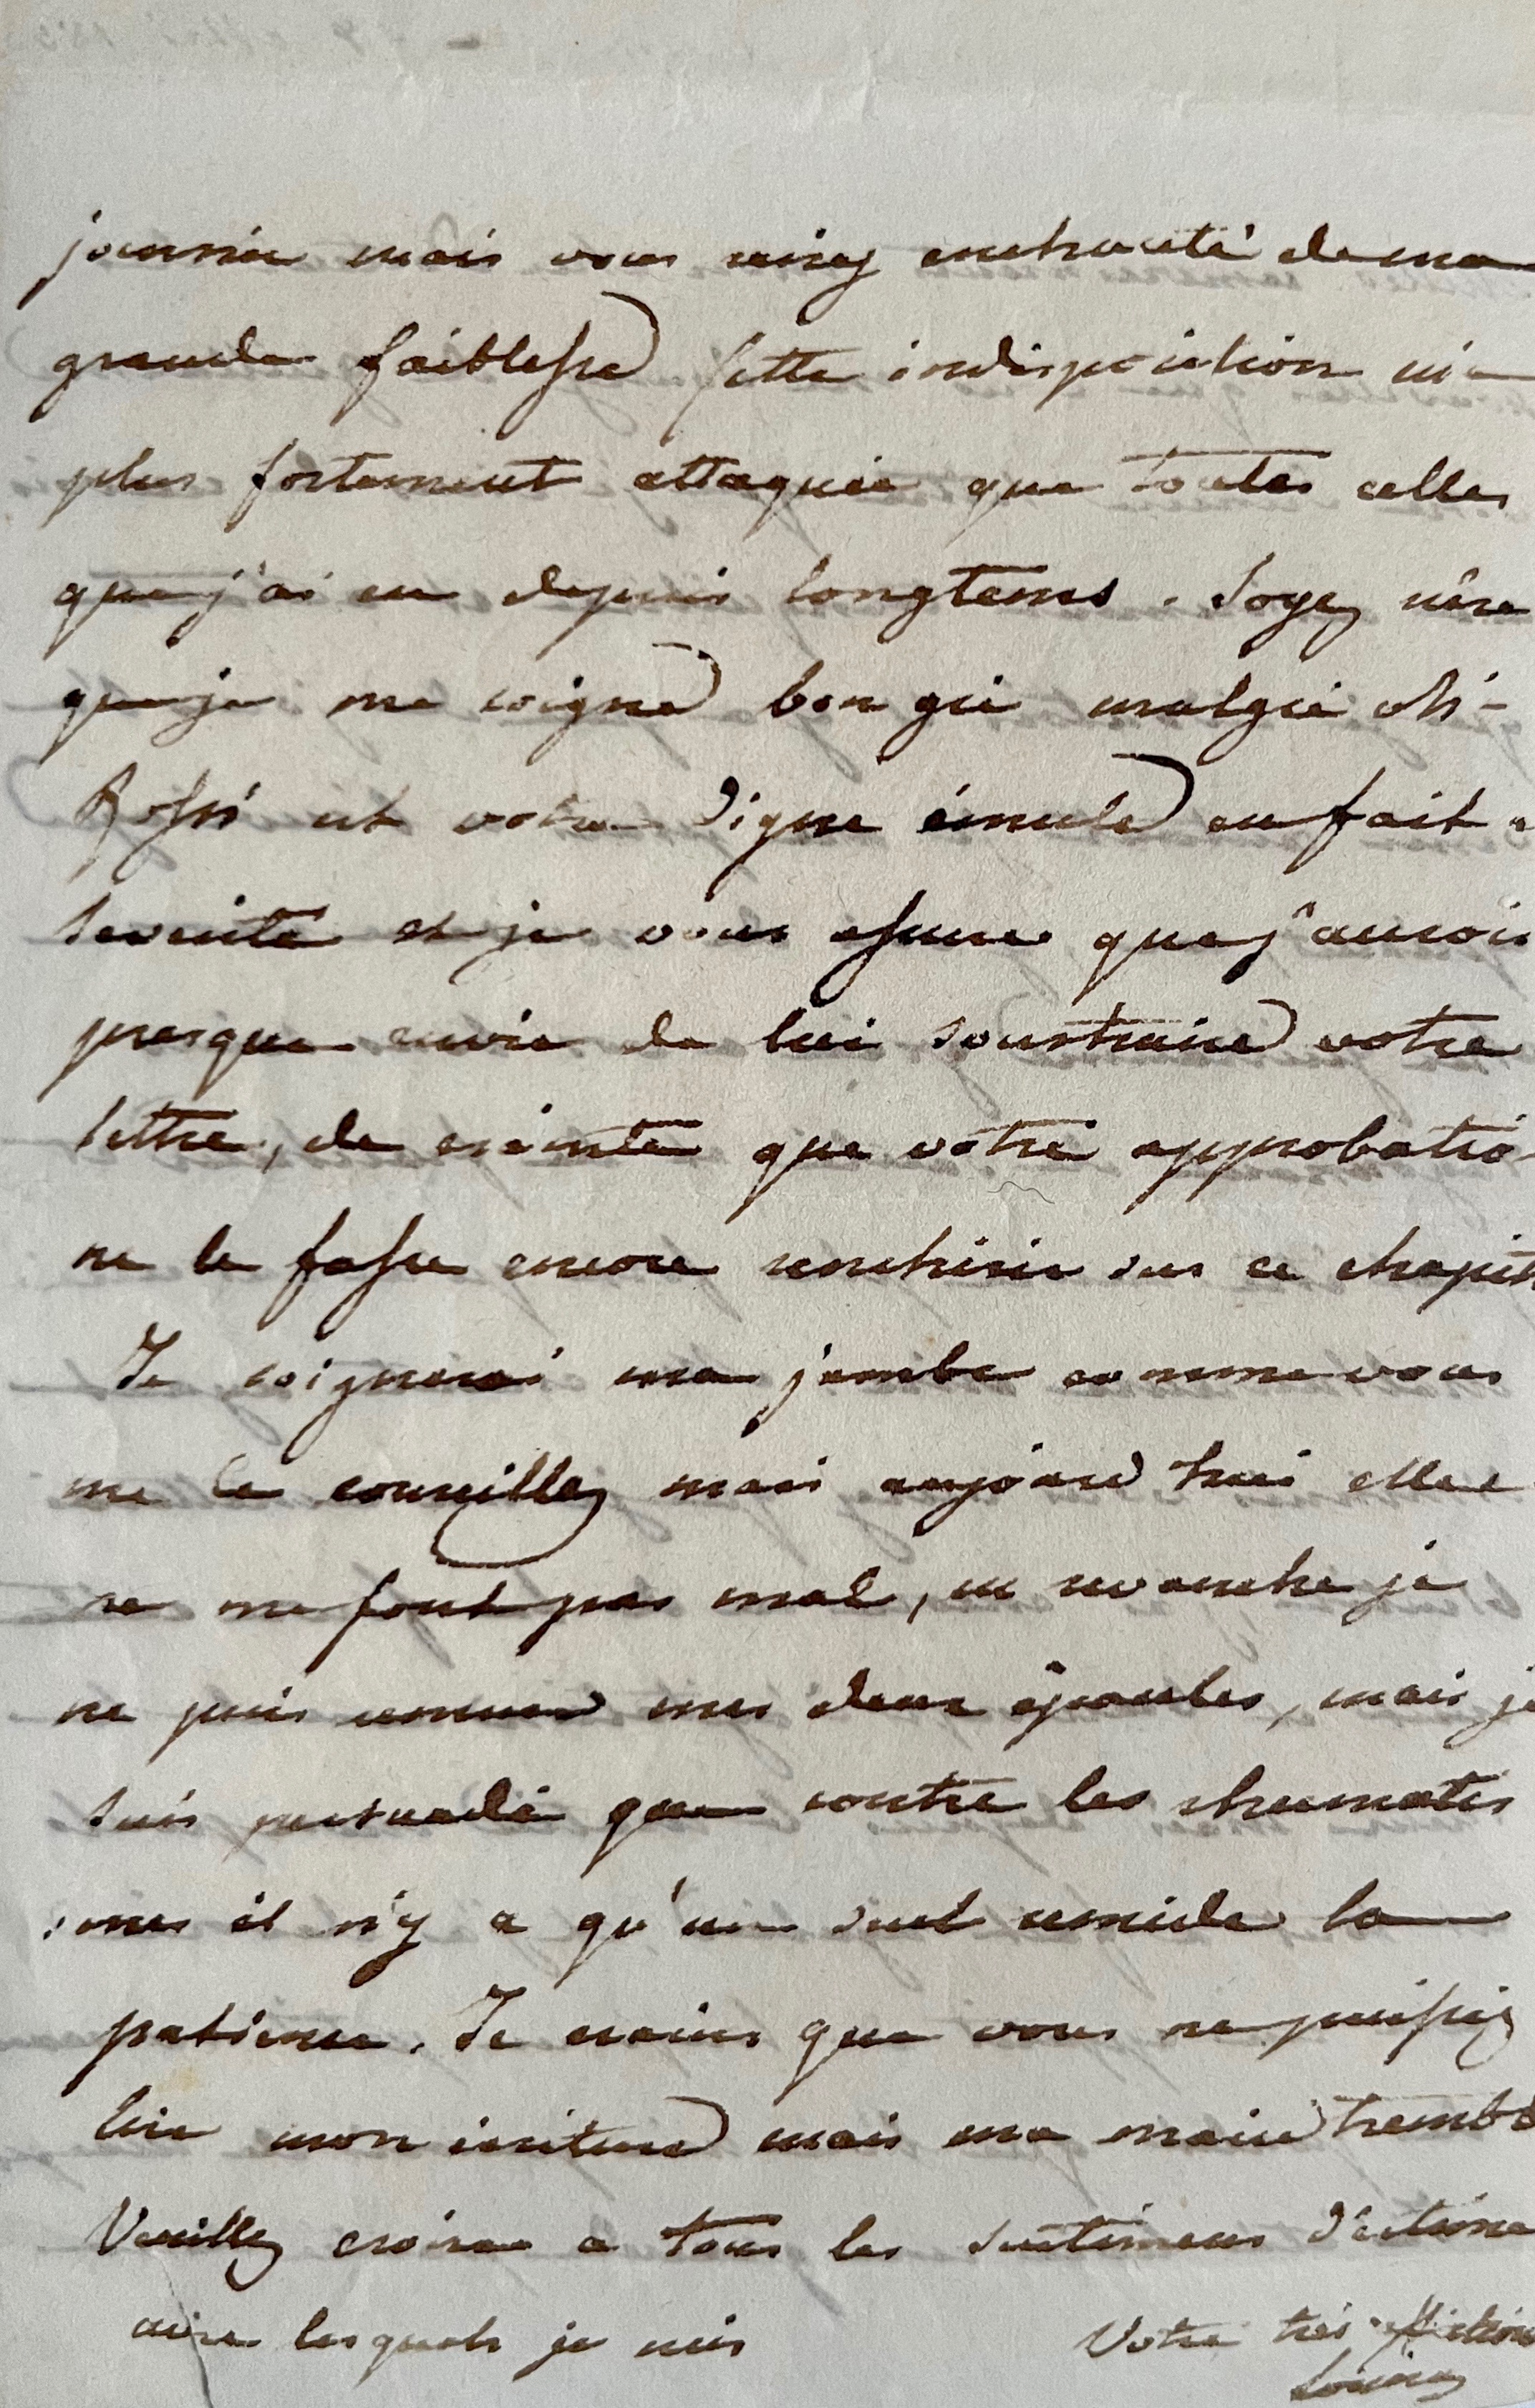 journée mais vous seriez enchanté de ma
grande faiblesse cette indisposition m'a
plus fortement attaquée que toutes celles
que j'ai eu depuis longtems. Soyez sûre
que je me soigne bon gré malgré Mr
Rossi est votre digne émule en fait
sevérité et je vous assure que j'aurois
presque envie de lui soustraire votre
lettre, de crainte que votre approbatio
ne le fasse encore renchérir sur ce chapit
Je soignerai ma jambe comme vous
me le conseillez mais aujourd'hui elle
ne me font pas mal, en revanche je
ne puis remuer mes deux épaules, mais je
suis persuadé que contre les rhumatis
mes il n'y a qu'un seul remède la
patience. Je crains que vous ne puissiez
lire mon écriture mais ma main trembl
Veuillez croire a tous les sentimens d'estime
avec lesquels je suis
Votre très
Louise